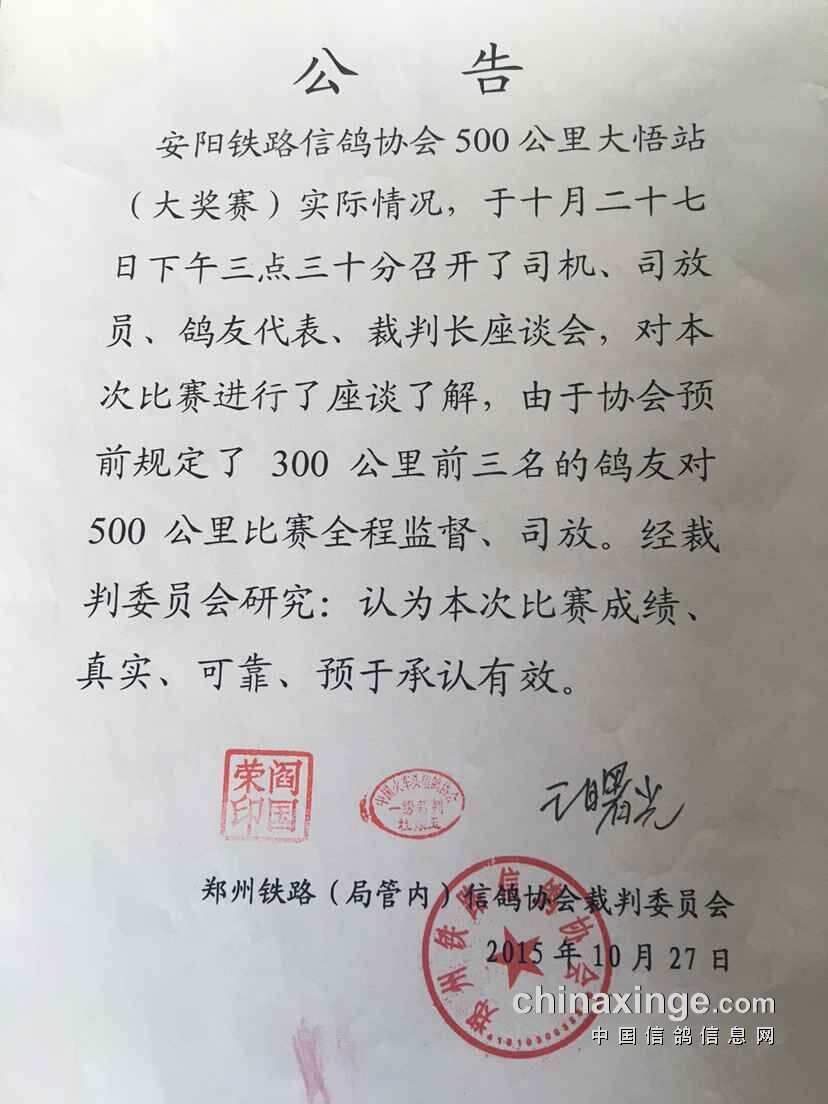 公 告
安阳铁路信鸽协会 500 公里大悟站
（大奖赛）实际情况，于十月二十七
日下午三点三十分召开了司机、司放
员、鸽友代表、裁判长座谈会，对本
次比赛进行了座谈了解，由于协会预
前规定了 300 公里前三名的鸽友对
500 公里比赛全程监督、司放。经裁
判委员会研究：认为本次比赛成绩、
真实、可靠、预于承认有效。
荣阎
印国
中国火车头信鸽协会
一级裁判
曙光
郑州铁路（局管内）信鸽协会裁判委员会
2015 年 10 月 27 日
郑州铁路信鸽协会
chinaxinge.com
中国信鸽信息网